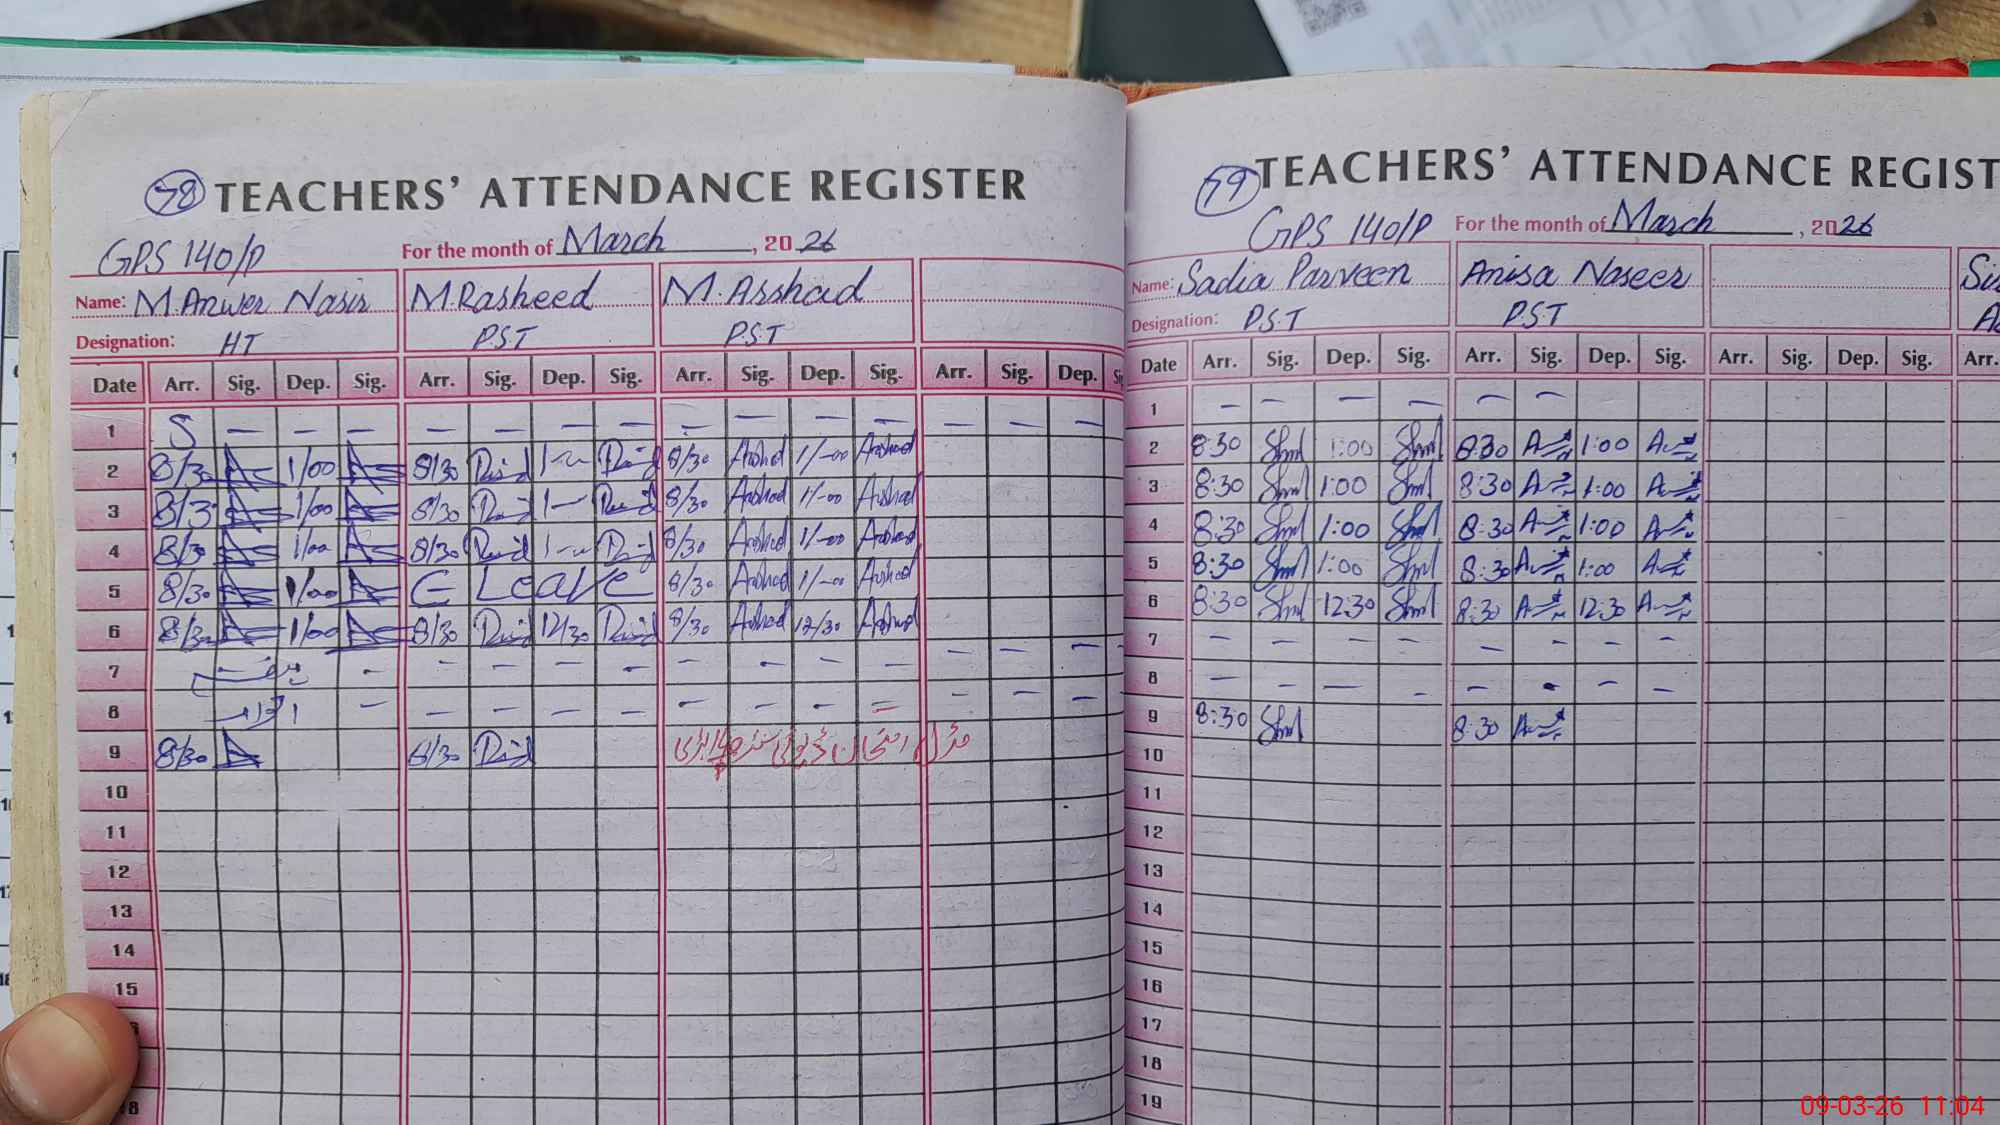 78 TEACHERS' ATTENDANCE REGISTER
GPS 140/P For the month of March, 2026
Name: M.Anwer Nasir M.Rasheed M.Arshad
Designation: HT P.S.T P.S.T
Date Arr. Sig. Dep. Sig. Arr. Sig. Dep. Sig. Arr. Sig. Dep. Sig. Arr. Sig. Dep.
1 S — — — — — — — — — — — — —
2 8/30 1/00 8/30 8/30 Arshad 1/-00 Arshad
3 8/3 1/00 8/30 8/30 Arshad 1/-00 Arshad
4 8/30 1/00 8/30 8/30 Arshad 1/-00 Arshad
5 8/30 1/00 C Leave 8/30 Arshad 1/-00 Arshad
6 8/30 1/00 8/30 12/30 8/30 Arshad 12/30 Arshad
7 - - - - - - - - - - - -
8 اتوار - - - - - - - - - - - -
9 8/30 8/30 مڈل امتحان ڈیوٹی
10
11
12
13
14
15
18
79 TEACHERS' ATTENDANCE REGIST
GPS 140/P For the month of March, 2026
Name: Sadia Parveen Anisa Naseer
Designation: P.S.T P.S.T
Date Arr. Sig. Dep. Sig. Arr. Sig. Dep. Sig. Arr. Sig. Dep. Sig. Arr.
1 — — — — — —
2 8:30 1:00 8:30 1:00
3 8:30 1:00 8:30 1:00
4 8:30 1:00 8:30 1:00
5 8:30 1:00 8:30 1:00
6 8:30 12:30 8:30 12:30
7 - - - - - - - -
8 - - - - - - - -
9 8:30 8:30
10
11
12
13
14
15
16
17
18
19
09-03-26 11:04